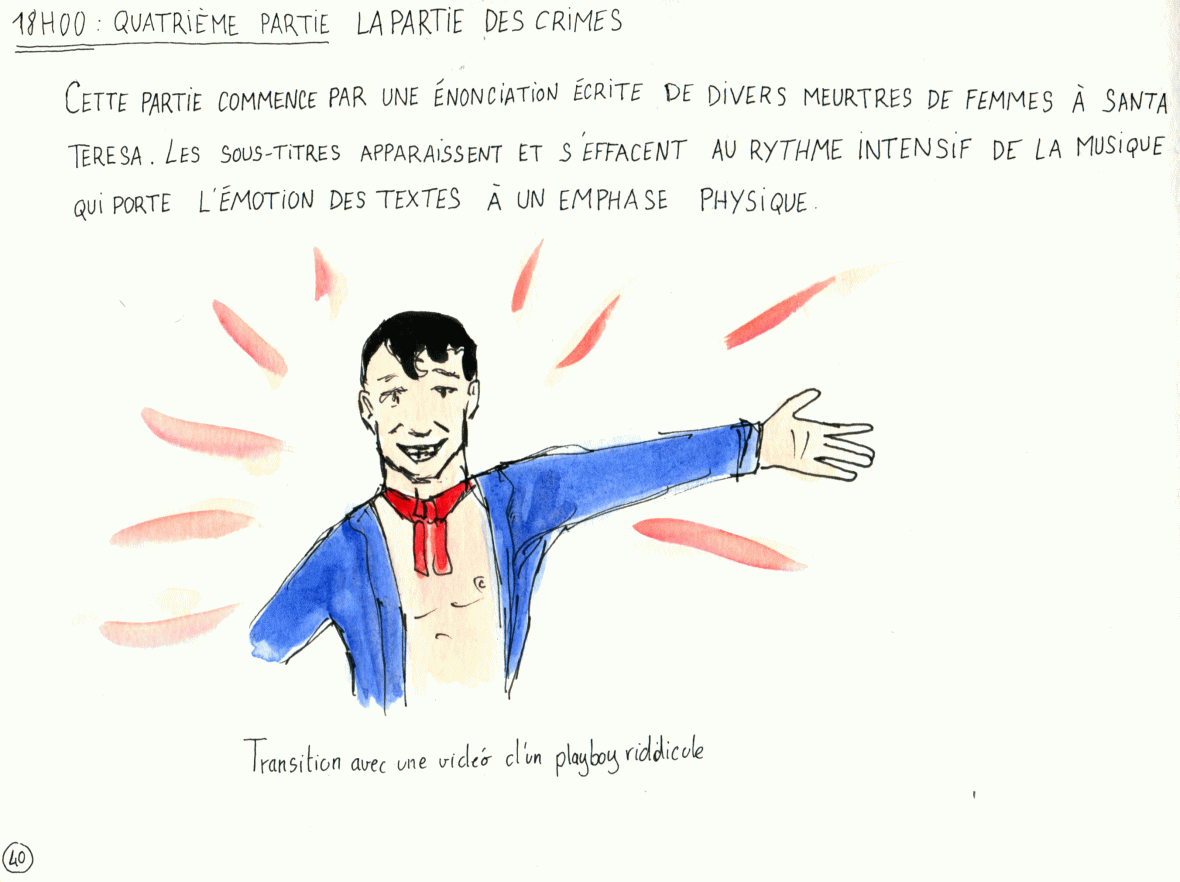 18H00 : QUATRIÈME PARTIE LA PARTIE DES CRIMES
CETTE PARTIE COMMENCE PAR UNE ÉNONCIATION ÉCRITE DE DIVERS MEURTRES DE FEMMES À SANTA
TERESA. LES SOUS-TITRES APPARAISSENT ET S'EFFACENT AU RYTHME INTENSIF DE LA MUSIQUE
QUI PORTE L'ÉMOTION DES TEXTES À UN EMPHASE PHYSIQUE.
Transition avec une vidéo d'un playboy riddicule
40